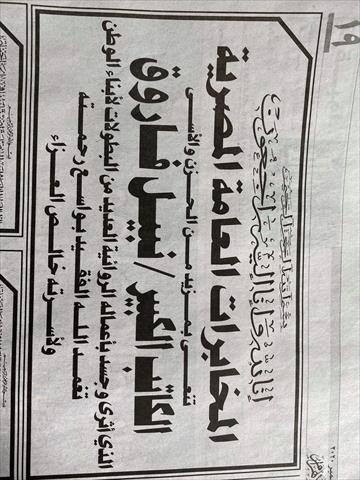 ١٩
بسم الله الرحمن الرحيم
المخابرات العامة المصرية
تنعى بمزيد من الحزن والأسى
الكاتب الكبير/ نبيل فاروق
الذى أثرى وجسد بأعماله الروائية العديد من البطولات لأبناء الوطن
تغمد الله الفقيد بواسع رحمته
ولأسرته خالص العزاء